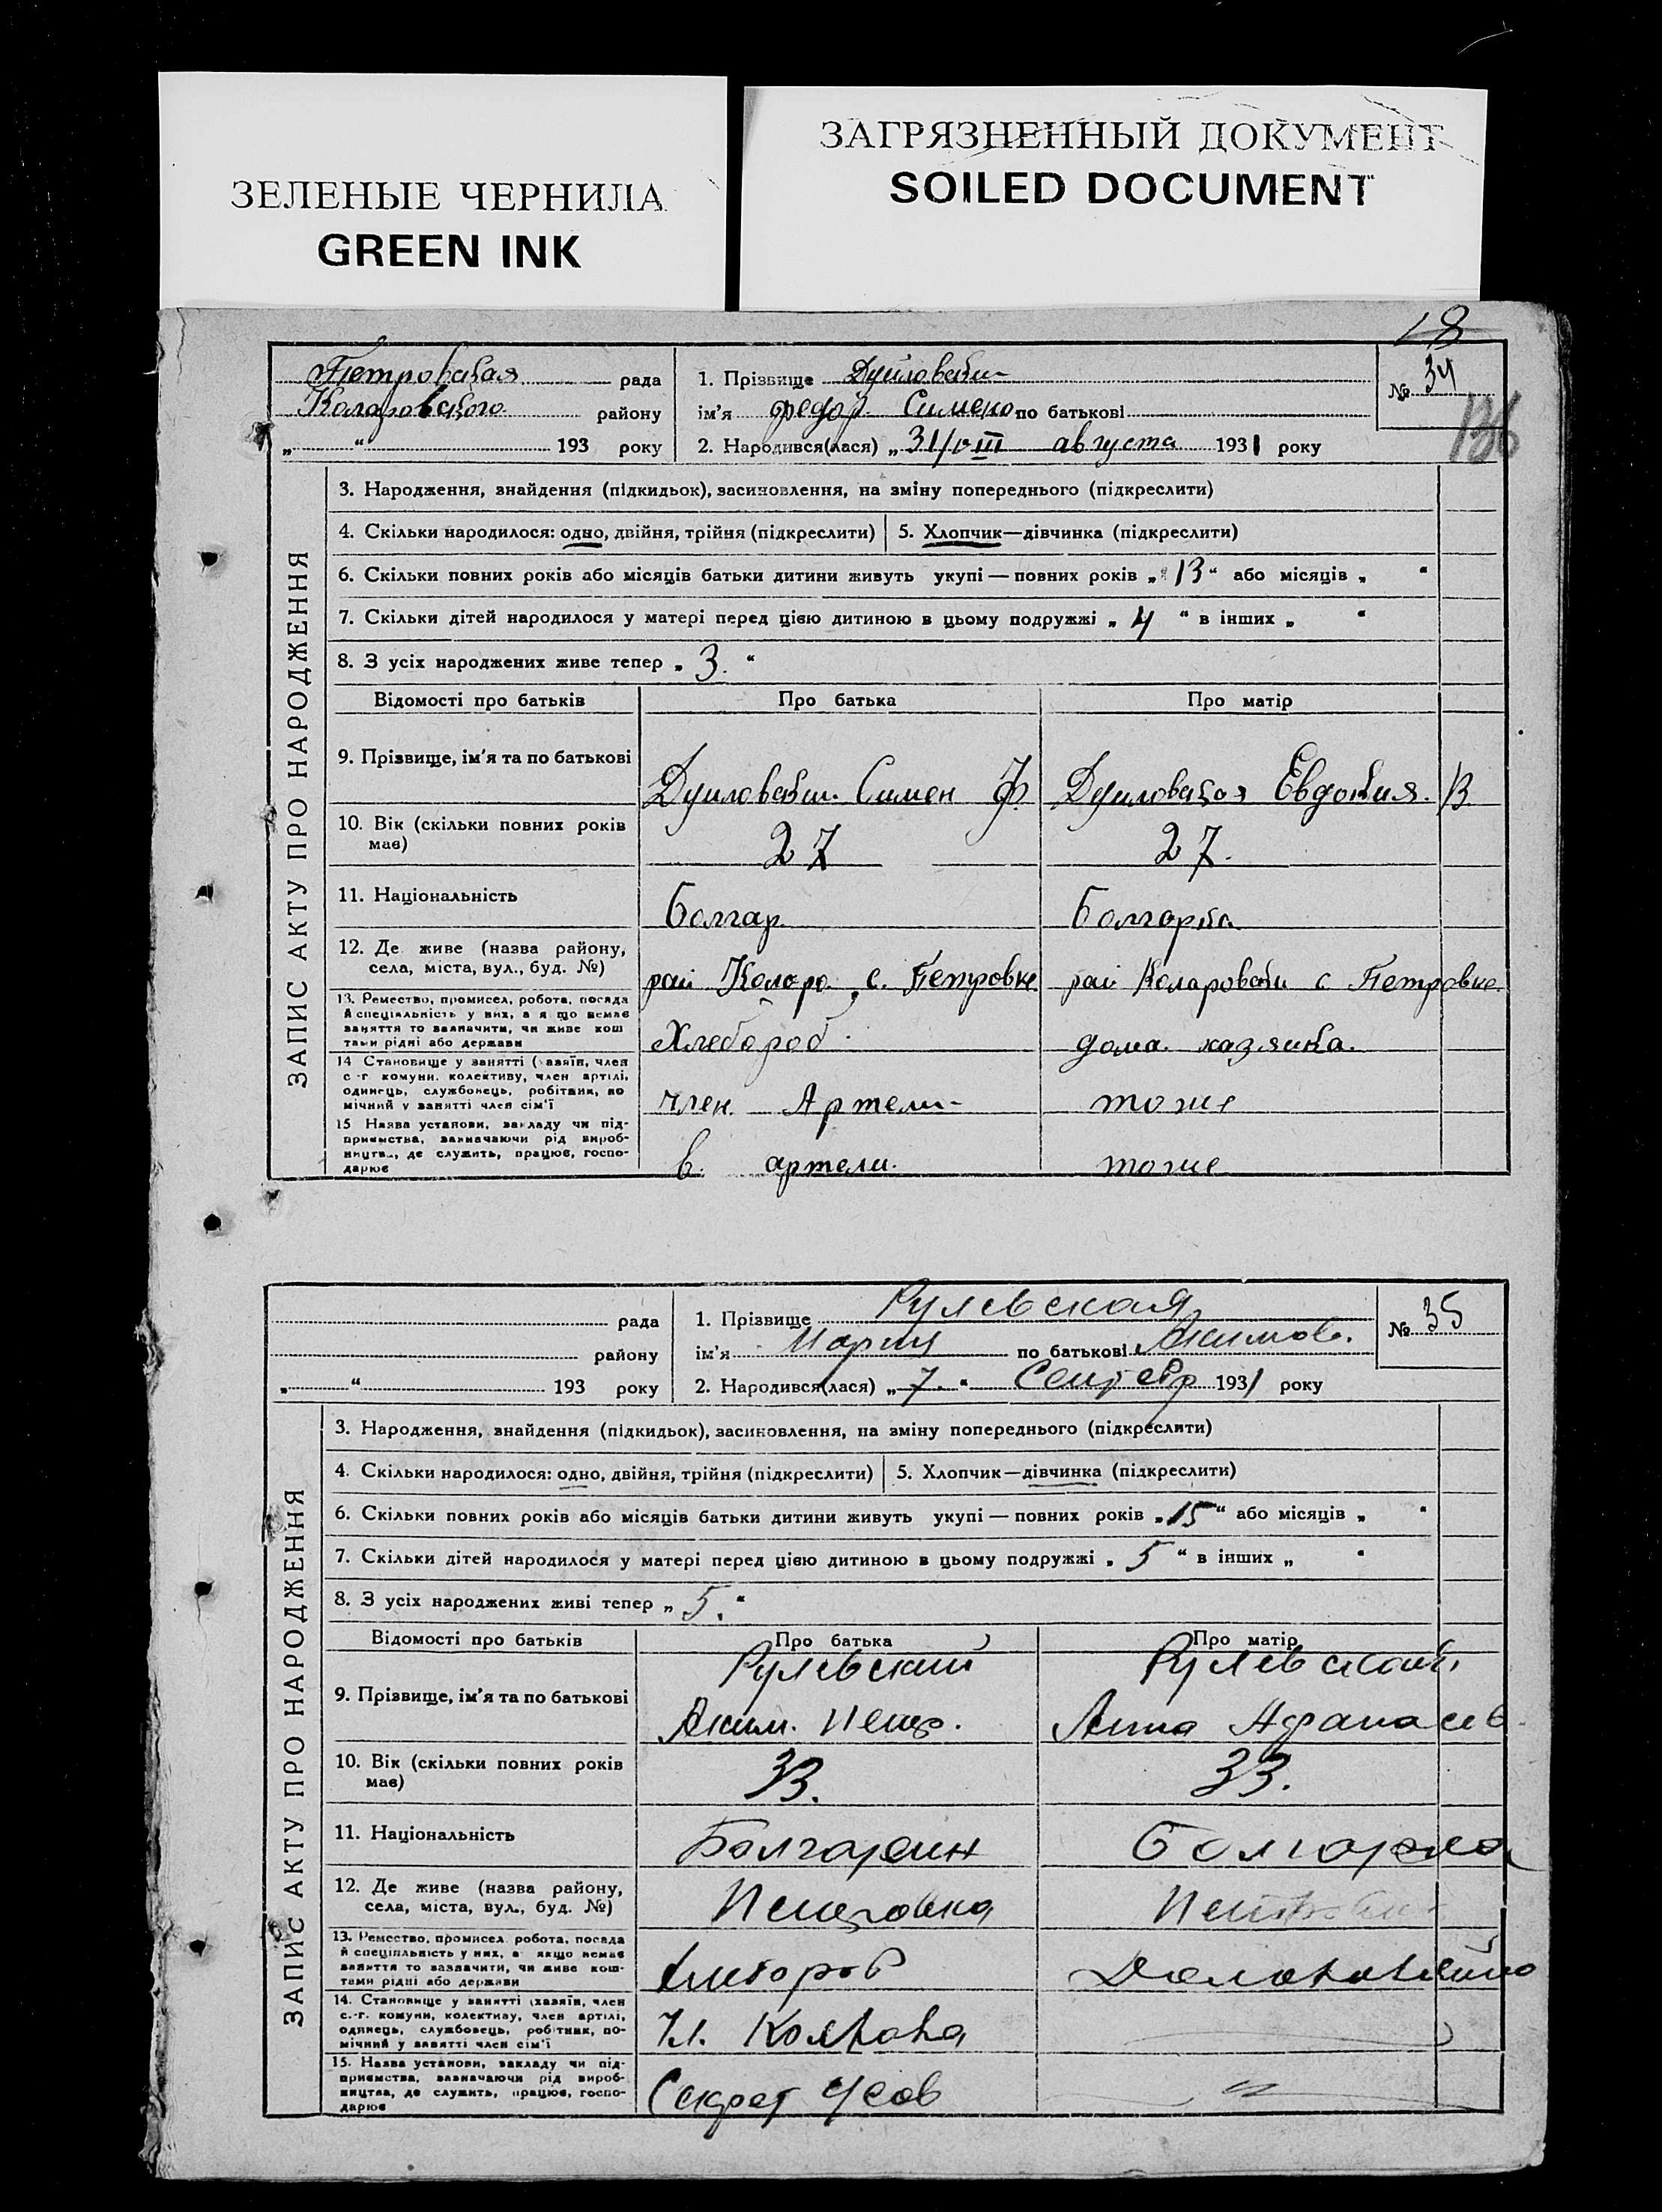 ЗЕЛЕНЫЕ ЧЕРНИЛА
GREEN INK
ЗАГРЯЗНЕННЫЙ ДОКУМЕНТ
SOILED DOCUMENT
18
Петровская рада
Коларовского району
„ “ 193 року
1. Прізвище
ім'я Федор Симено по батькові
2. Народився(лася) „31/VIII августа 1931 року
№ 34
136
ЗАПИС АКТУ ПРО НАРОДЖЕННЯ
3. Народження, знайдення (підкидьок), засиновлення, на зміну попереднього (підкреслити)
4. Скільки народилося: одно, двійня, трійня (підкреслити)
5. Хлопчик—дівчинка (підкреслити)
6. Скільки повних років або місяців батьки дитини живуть укупі — повних років „13“ або місяців „ “
7. Скільки дітей народилося у матері перед цією дитиною в цьому подружжі „ 4 “ в інших „ “
8. З усіх народжених живе тепер „ 3. “
Відомості про батьків
Про батька
Про матір
9. Прізвище, ім'я та по батькові
Симен Ф.
Евдокия. В.
10. Вік (скільки повних років
має)
27
27.
11. Національність
Болгар.
Болгарка.
12. Де живе (назва району,
села, міста, вул., буд. №)
рай Коларо. с. Петровке
рай Коларовски с Петровке.
13. Ремество, промисел, робота, посада
й спеціяльність у них, а я що немає
заняття то зазначити, чи живе кош
тами рідні або держави
Хлебороб.
дома. хазяика.
14 Становище у занятті (хазяїн, член
с-г комуни, колективу, член артілі,
одинець, службовець, робітник, по
мічний у занятті член сім'ї
член. Артели
тоже
15 Назва установи, закладу чи під-
приємства, зазначаючи рід вироб-
ництва, де служить, працює, госпо-
дарює
в. артели.
тоже
рада
району
„ “ 193 року
1. Прізвище Рулевская
ім'я Мария по батькові Акимов.
2. Народився(лася) „ 7. “ Сентебр 1931 року
№ 35
ЗАПИС АКТУ ПРО НАРОДЖЕННЯ
3. Народження, знайдення (підкидьок), засиновлення, на зміну попереднього (підкреслити)
4. Скільки народилося: одно, двійня, трійня (підкреслити)
5. Хлопчик—дівчинка (підкреслити)
6. Скільки повних років або місяців батьки дитини живуть укупі — повних років „15“ або місяців „ “
7. Скільки дітей народилося у матері перед цією дитиною в цьому подружжі „ 5 “ в інших „ “
8. З усіх народжених живі тепер „ 5. “
Відомості про батьків
Про батька
Про матір
9. Прізвище, ім'я та по батькові
Рулевский
Аким. Петр.
Анна Афанасев
10. Вік (скільки повних років
має)
33.
33.
11. Національність
Болгарин
Болгарка
12. Де живе (назва району,
села, міста, вул., буд. №)
Петровка
13. Ремество, промисел робота, посада
й спеціяльність у них, а якщо немає
заняття то зазначити, чи живе кош-
тами рідні або держави
Хлебороб
14. Становище у занятті (хазяїн, член
с.-г. комуни, колективу, член артілі,
одинець, службовець, робітник, по-
мічний у занятті член сім'ї
Чл. Колхоза
15. Назва установи, закладу чи під-
приємства, зазначаючи рід вироб-
ництва, де служить, працює, госпо-
дарює
Секрет